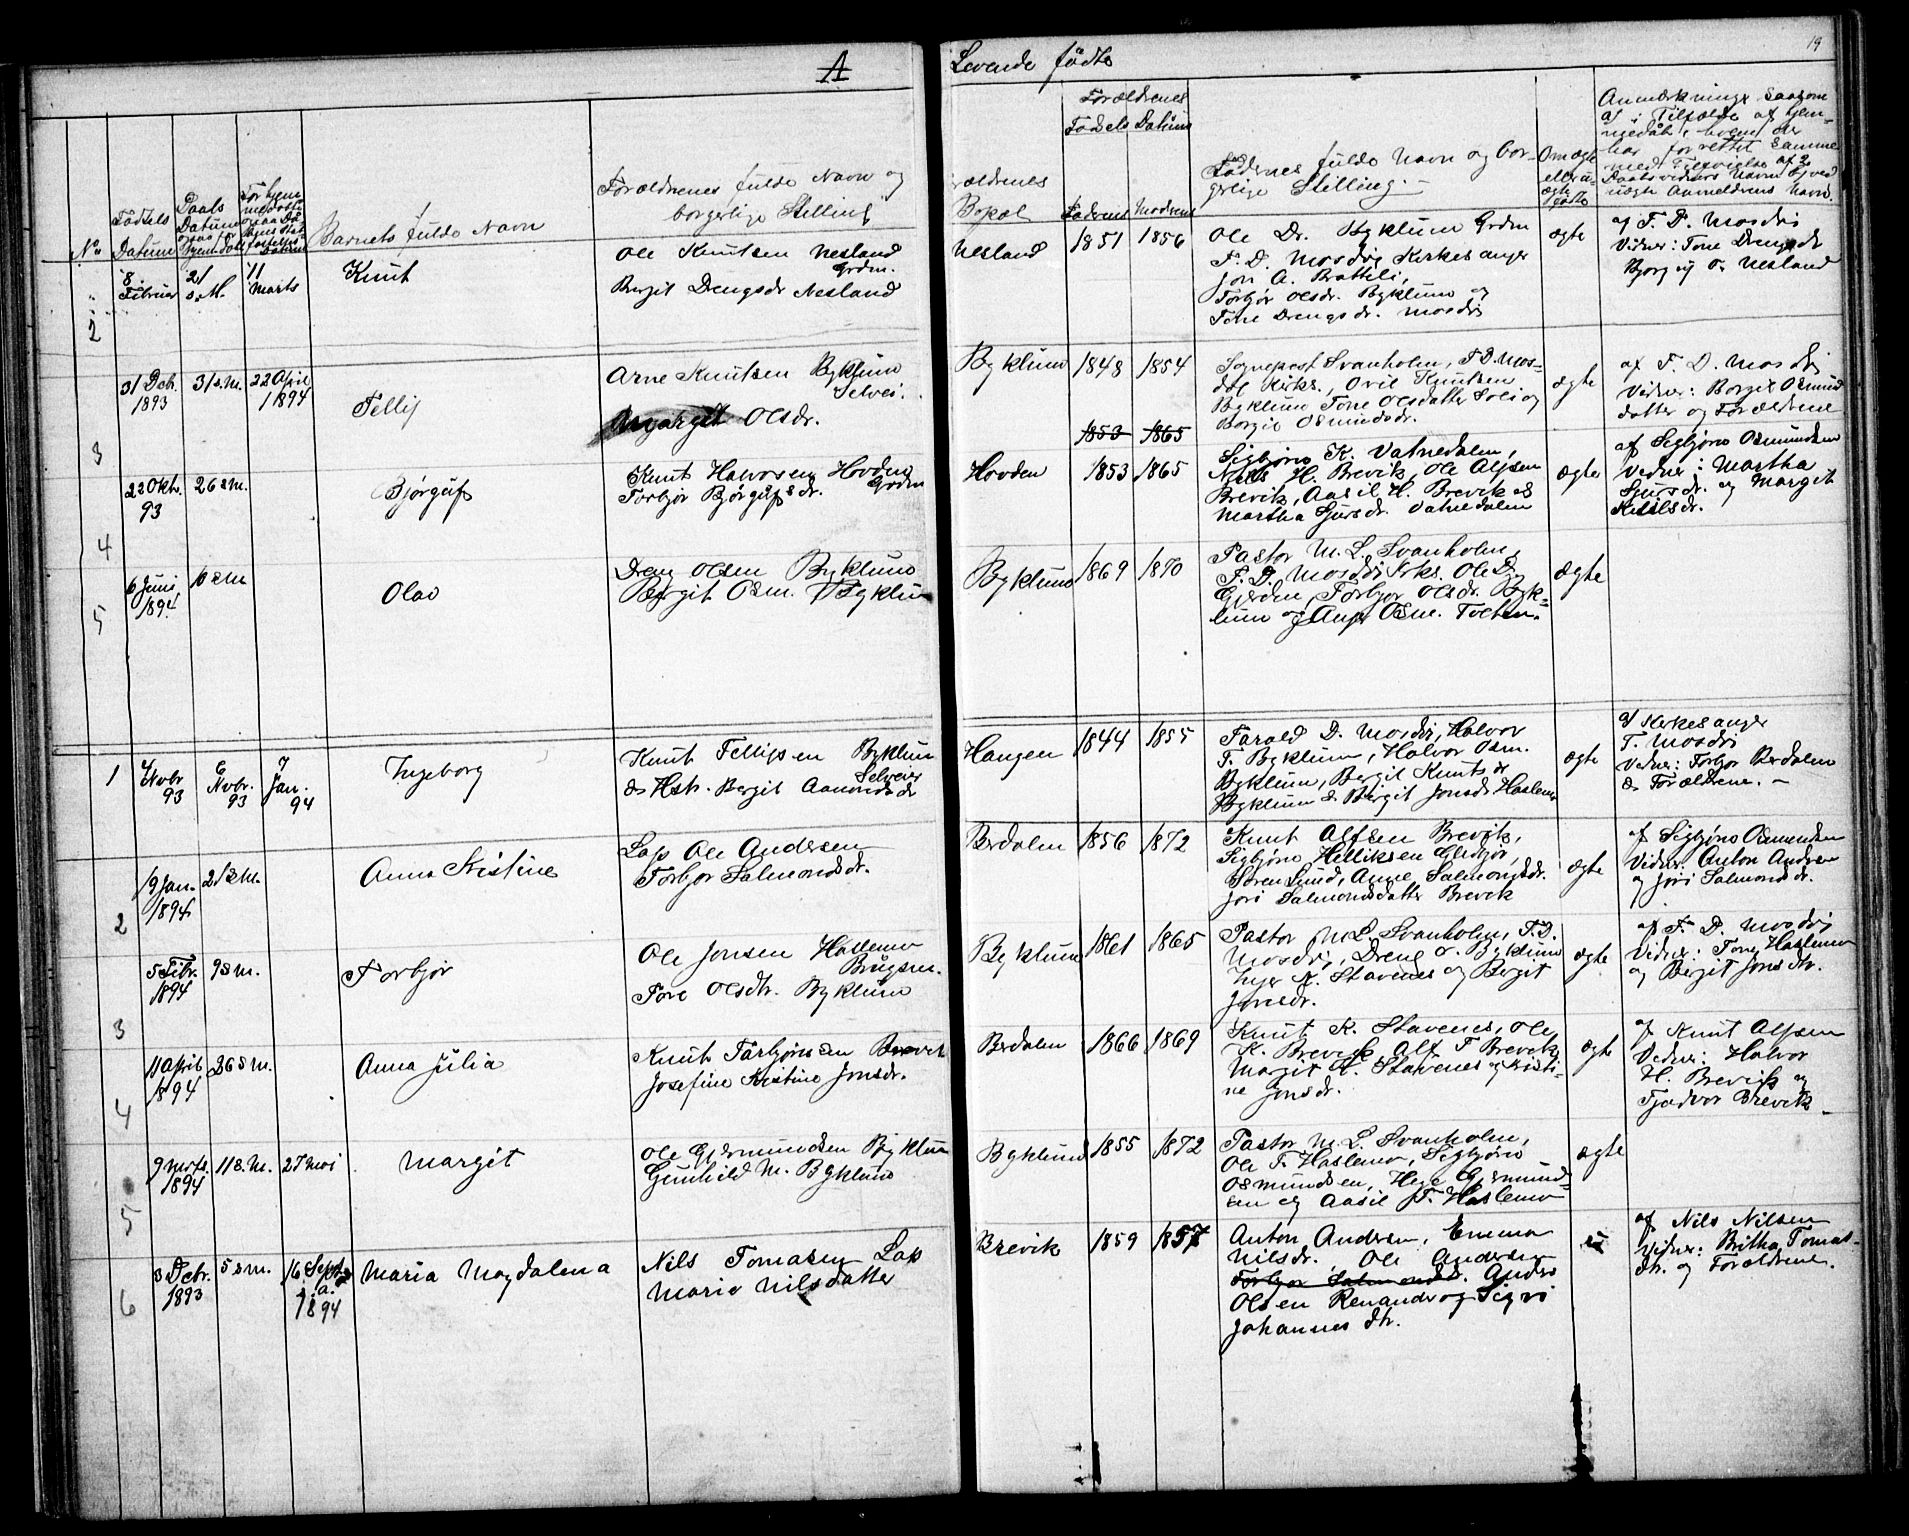 A
Levende fødte
19
No
Fødsels
Datum
Daabs
Datum
Barnets fulde Navn
Forældrenes fulde Navn og
borgerlige Stilling
Forældrenes
Bopæl
Forældrenes
Fødsels Datum
Faderens Moderens
Faddernes fulde Navn og bor-
gerlige Stilling.
Om ægte
eller u-
ægte
født
2
8
Februar
21
s.M.
11
Marts
Knut
Ole Knutsen Nesland
Grdm.
Bergit Drengsdr Nesland
Nesland
1851
1856
Ole Dr. Byklum Grdm
T. D. Mosdøi Kirkesanger
Jon A. Bratteli,
Torbjør Olsdr. Byklum og
Tone Drengsdr. Mosdøi
ægte
af T. D. Mosdøi
Vidner: Tone Drengsdr
Bjørg og O. Nesland
3
31 Dcb.
1893
31 s.M.
22 April
1894
Tellif
Arne Knutsen Byklum
Selvei.
Margit Olsdr.
Byklum
1848
1854
1853
1865
Sognepræst Svanholm, T. D. Mos-
døl Kirks., Ovil Knutsen
Byklum Tone Olsdatter Solei og
Borgil Osmundsdr.
ægte
af T. D. Mosdøi
Vidner: Borgil Osmund
datter og Forældrene
4
22 Oktr.
93
26 s.M.
Bjørguf
Knut Halvorsen Hovden
Grdm
Torbjør Bjørgufsdr.
Hovden
1853
1865
Sigbjørn K. Vatnedalen,
Nils H. Brevik, Ole Alfsen
Brevik, Aasil H. Brevik og
Martha Sjursdr. Vatnedalen
ægte
af Sigbjørn Osmundsen
Vidner: Martha
Sjursdr. og Margit
Ketilsdr.
5
6 Juni
1894
10 s.M
Olav
Dreng Olsen Byklum
Bergit Osm. Byklum
Byklum
1869
1870
Pastor M. L. Svanholm,
T. D. Mosdøi Krks. Ole D.
Gjerden, Torbjør Olsdr. Byk-
lum og Anne Osm. Tveten.
ægte
1
4
Novbr
93
6
Novbr.
93
7
Jan.
94
Ingeborg
Knut Tellifsen Byklum
Selveier
& Hstr. Bergit Aamundsdr
Haugen
1844
1855
Tarald D. Mosdøi, Halvor
T. Byklum, Halvor Osm.
Byklum, Bergit Knutsdr
Byklum & Birgit Jonsdr Haslemo
ægte
af Kirkesanger
T. Mosdøi
Vidner: Torbjør Berdalen
& Forældrene. –
2
19 Jan.
1894
21 s.M.
Anna Kristine
Lap Ole Andersen
Torbjør Salmondsdr.
Berdalen
1856
1872
Knut Alfsen Brevik,
Sigbjørn Helliksen Glidbjør,
Søren Lund, Anne Salmondsdr.
Jori Salmondsdatter Brevik
ægte
af Sigbjørn Osmundsen
Vidner: Anton Anders
og Jori Salmondsdr.
3
5 Febr.
1894
9 s.M.
Torbjør
Ole Jonsen Haslemo
Brugsm.
Tone Olsdtr. Byklum
Byklum
1861
1865
Pastor M. L. Svanholm, T. D.
Mosdøi, Dreng O. Byklum
Inger K. Stavenes og Bergit
Jonsdr.
ægte
af T. D. Mosdøi
Vidner: Tone Haslemo
og Bergit Jonsdtr.
4
11 April
1894
26 s.M.
Anna Julia
Knut Tarbjørnsen Brevik
Josefine Kristine Jonsdr.
Berdalen
1866
1869
Knut K. Stavenes, Ole
K. Brevik, Alf T Brevik,
Margit K. Stavenes og Kristi-
ne Jonsdr.
ægte
af Knut Alfsen
Vidner: Halvor
H. Brevik og
Tjodvor Brevik.
5
9 Marts.
1894
11 s.M.
27 Mai
Margit
Ole Gjermundsen Byklum
Gunhild M. Byklum
Byklund
1855
1872
Pastor M. L. Svanholm,
Ole T. Haslemo, Sigbjørn
Osmundsen, Hege Gjermund-
sen og Aasil T. Haslemo
ægte
6
3 Dcbr.
1893
5 s.M.
16 Septr
s.a.
1894
Maria Magdalena
Nils Tomasen Lap
Maria Nilsdatter
Brevik
1859
1857
Anton Andersen, Emma
Nilsdr. Ole Andersen
Torbjør Salmondsdr. Anders
Olsen Renander og Sigri
Johannesdtr.
u
af Nils Nilsen
Vidner: Britha Tomas-
dtr. og Forældrene.